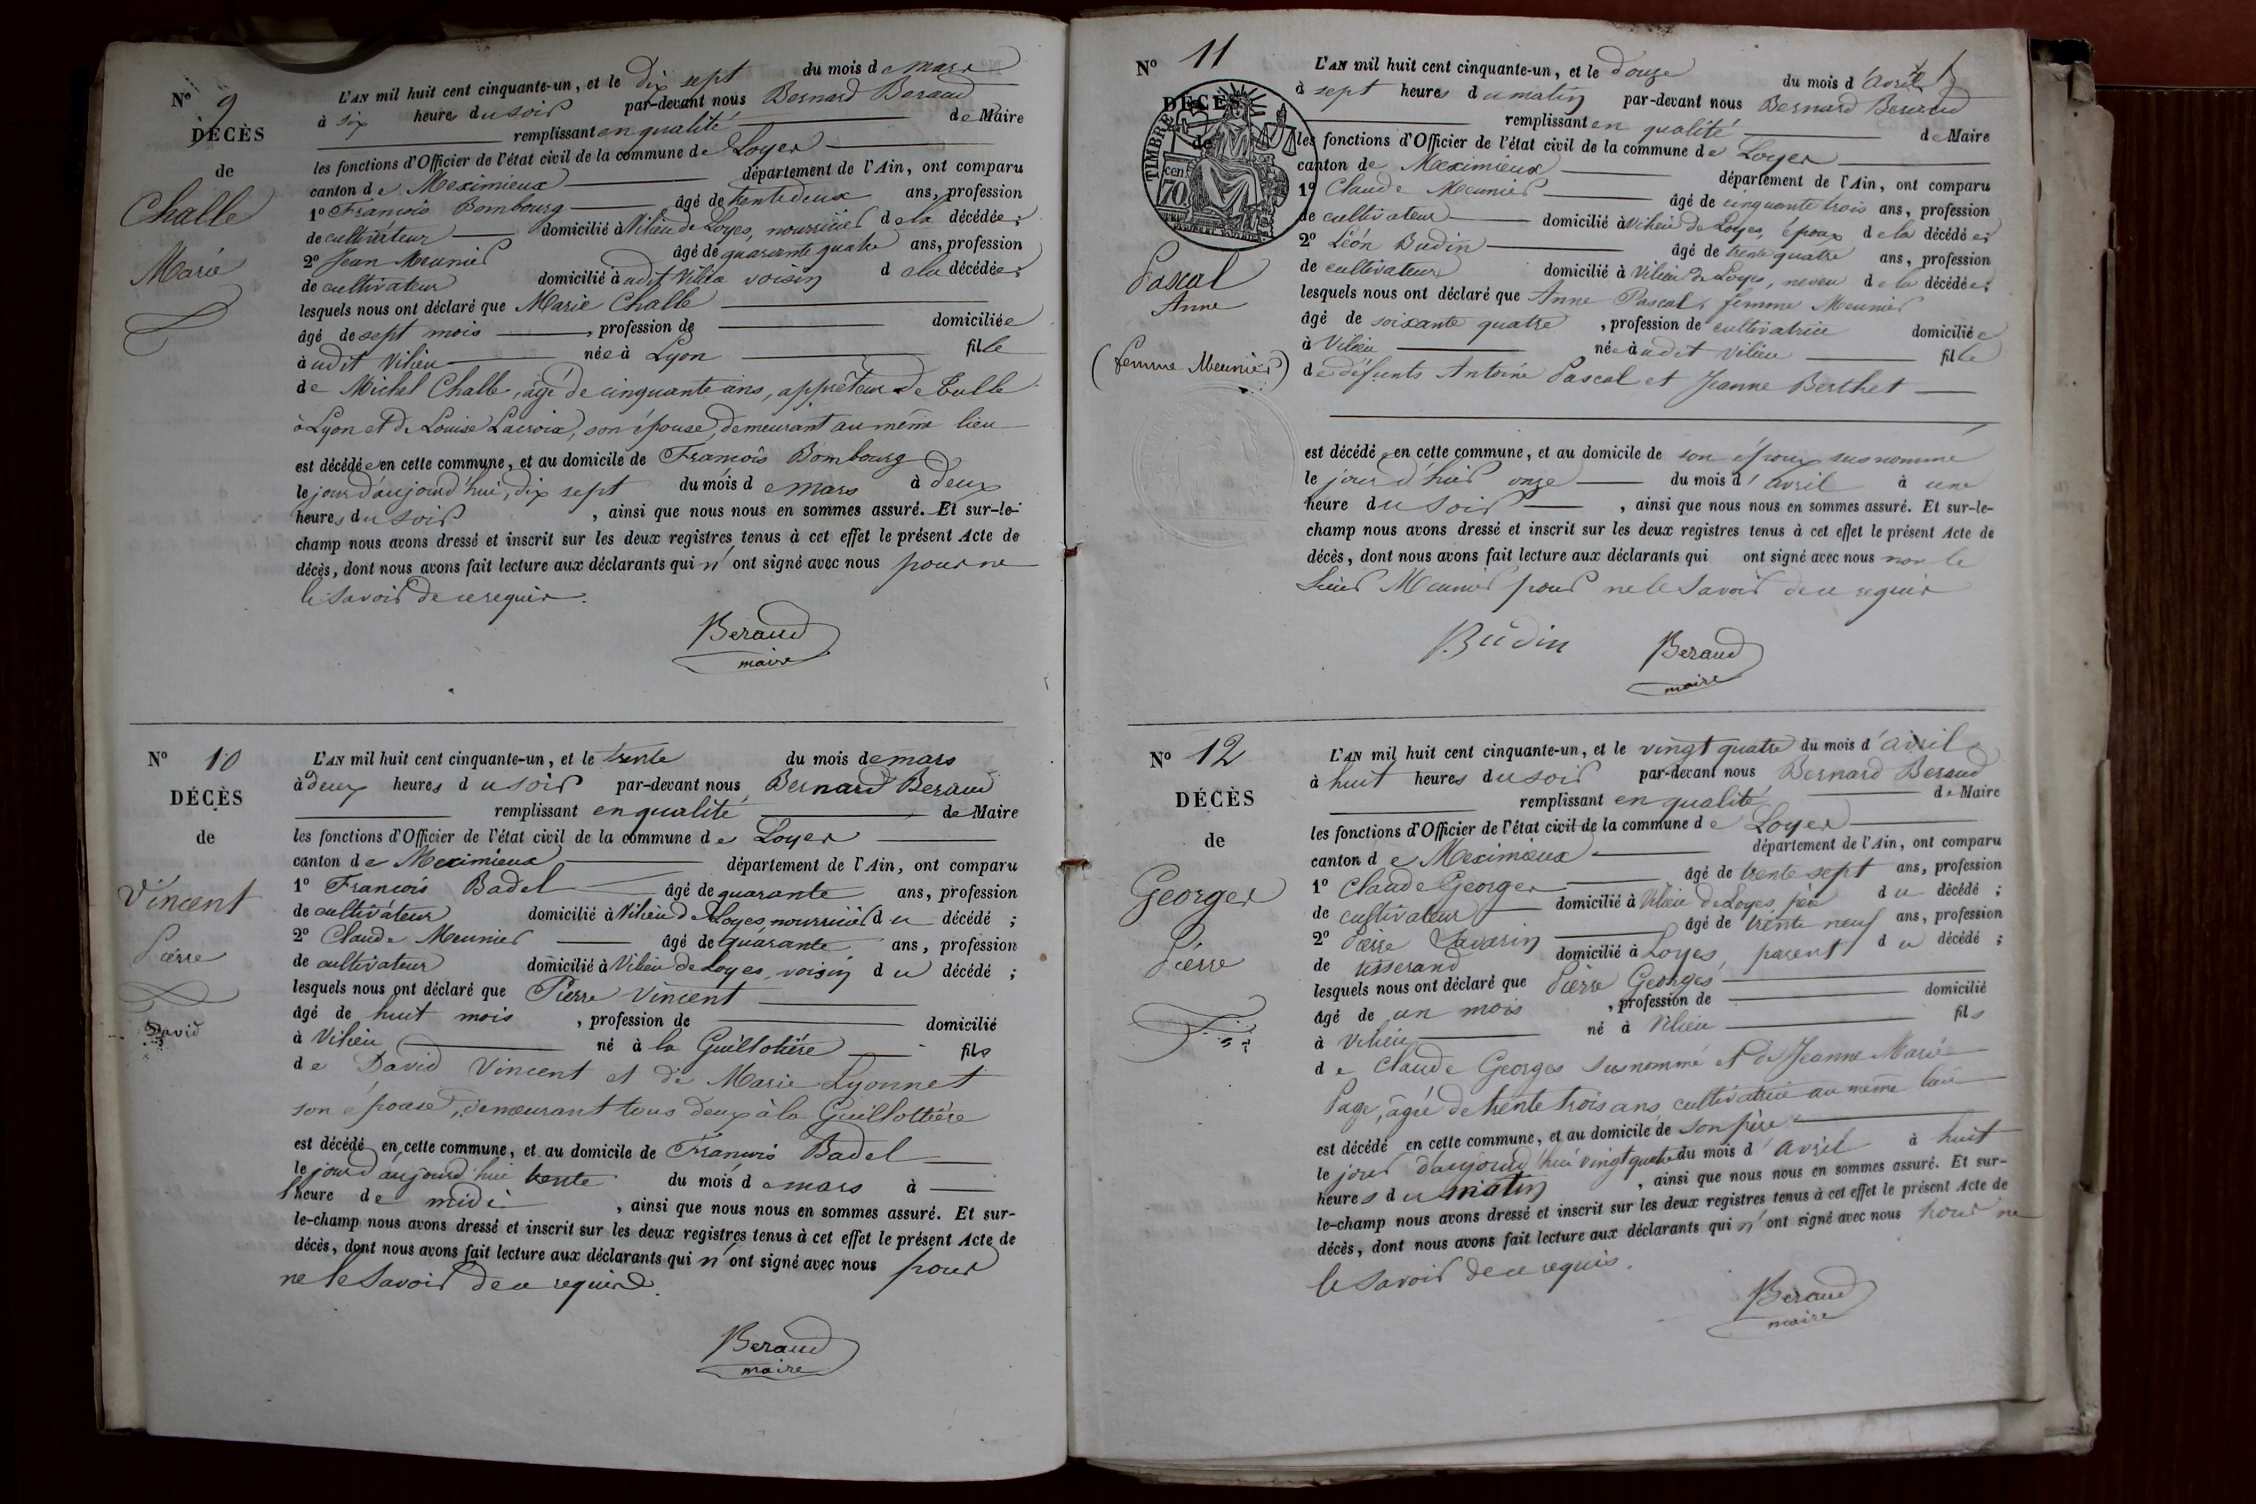 N° 9
DÉCÈS
de
Challe
Marie
L'AN mil huit cent cinquante-un, et le dix sept du mois de mars
à six heures du soir par-devant nous Bernard Beraud
remplissant en qualité de Maire
les fonctions d'Officier de l'état civil de la commune de Loyes
canton de Meximieux département de l'Ain, ont comparu
1° François Bombourg âgé de trente deux ans, profession
de cultivateur domicilié à Vilieu de Loyes, nourricier de la décédée;
2° Jean Meunier âgé de quarante quatre ans, profession
de cultivateur domicilié à udit Vilieu voisin de la décédée;
lesquels nous ont déclaré que Marie Challe
âgé de sept mois, profession de domiciliée
à udit Vilieu née à Lyon fille
de Michel Challe, âgé de cinquante ans, apprêteur de Tulle
à Lyon et de Louise Lacroix, son épouse, demeurant au même lieu
est décédée en cette commune, et au domicile de François Bombourg
le jour d'aujourd'hui, dix sept du mois de mars à deux
heures du soir, ainsi que nous nous en sommes assuré. Et sur-le-
champ nous avons dressé et inscrit sur les deux registres tenus à cet effet le présent Acte de
décès, dont nous avons fait lecture aux déclarants qui n'ont signé avec nous pour ne
le savoir de ce requis.
Beraud
maire
N° 10
DÉCÈS
de
Vincent
Pierre
David
L'AN mil huit cent cinquante-un, et le trente du mois de mars
à deux heures du soir par-devant nous Bernard Beraud
remplissant en qualité de Maire
les fonctions d'Officier de l'état civil de la commune de Loyes
canton de Meximieux département de l'Ain, ont comparu
1° François Badel âgé de quarante ans, profession
de cultivateur domicilié à Vilieu de Loyes, nourricier du décédé;
2° Claude Meunier âgé de quarante ans, profession
de cultivateur domicilié à Vilieu de Loyes, voisin du décédé;
lesquels nous ont déclaré que Pierre Vincent
âgé de huit mois, profession de domicilié
à Vilieu né à la Guillotière fils
de David Vincent et de Marie Lyonnet
son épouse, demeurant tous deux à la Guillottière
est décédé en cette commune, et au domicile de François Badel
le jour d'aujourd'hui trente du mois de mars à
l'heure de midi, ainsi que nous nous en sommes assuré. Et sur-
le-champ nous avons dressé et inscrit sur les deux registres tenus à cet effet le présent Acte de
décès, dont nous avons fait lecture aux déclarants qui n'ont signé avec nous pour
ne le savoir de ce requis.
Beraud
maire
N° 11
DÉCÈS
de
TIMBRE
70 cen.
Pascal
Anne
(femme Meunier)
L'AN mil huit cent cinquante-un, et le douze du mois d'avril
à sept heures du matin par-devant nous Bernard Beraud
remplissant en qualité de Maire
les fonctions d'Officier de l'état civil de la commune de Loyes
canton de Meximieux département de l'Ain, ont comparu
1° Claude Meunier âgé de cinquante trois ans, profession
de cultivateur domicilié à Vilieu de Loyes, époux de la décédée;
2° Léon Budin âgé de trente quatre ans, profession
de cultivateur domicilié à Vilieu de Loyes, neveu de la décédée;
lesquels nous ont déclaré que Anne Pascal, femme Meunier
âgé de soixante quatre, profession de cultivatrice domiciliée
à Vilieu née à udit Vilieu fille
de défunts Antoine Pascal et Jeanne Berthet
est décédé en cette commune, et au domicile de son époux susnommé
le jour d'hier onze du mois d'avril à une
heure du soir, ainsi que nous nous en sommes assuré. Et sur-le-
champ nous avons dressé et inscrit sur les deux registres tenus à cet effet le présent Acte de
décès, dont nous avons fait lecture aux déclarants qui ont signé avec nous non le
sieur Meunier pour ne le savoir de ce requis
Budin
Beraud
maire
N° 12
DÉCÈS
de
Georges
Pierre
L'AN mil huit cent cinquante-un, et le vingt quatre du mois d'avril
à huit heures du soir par-devant nous Bernard Beraud
remplissant en qualité de Maire
les fonctions d'Officier de l'état civil de la commune de Loyes
canton de Meximieux département de l'Ain, ont comparu
1° Claude Georges âgé de trente sept ans, profession
de cultivateur domicilié à Vilieu de Loyes, père du décédé;
2° Pierre Savarin âgé de trente neuf ans, profession
de tisserand domicilié à Loyes, parent du décédé;
lesquels nous ont déclaré que Pierre Georges
âgé de un mois, profession de domicilié
à Vilieu né à Vilieu fils
de Claude Georges susnommé et de Jeanne Marie
Page, âgée de trente trois ans, cultivatrice au même lieu
est décédé en cette commune, et au domicile de son père
le jour d'aujourd'hui vingt quatre du mois d'avril à huit
heures du matin, ainsi que nous nous en sommes assuré. Et sur-
le-champ nous avons dressé et inscrit sur les deux registres tenus à cet effet le présent Acte de
décès, dont nous avons fait lecture aux déclarants qui n'ont signé avec nous pour ne
le savoir de ce requis.
Beraud
maire